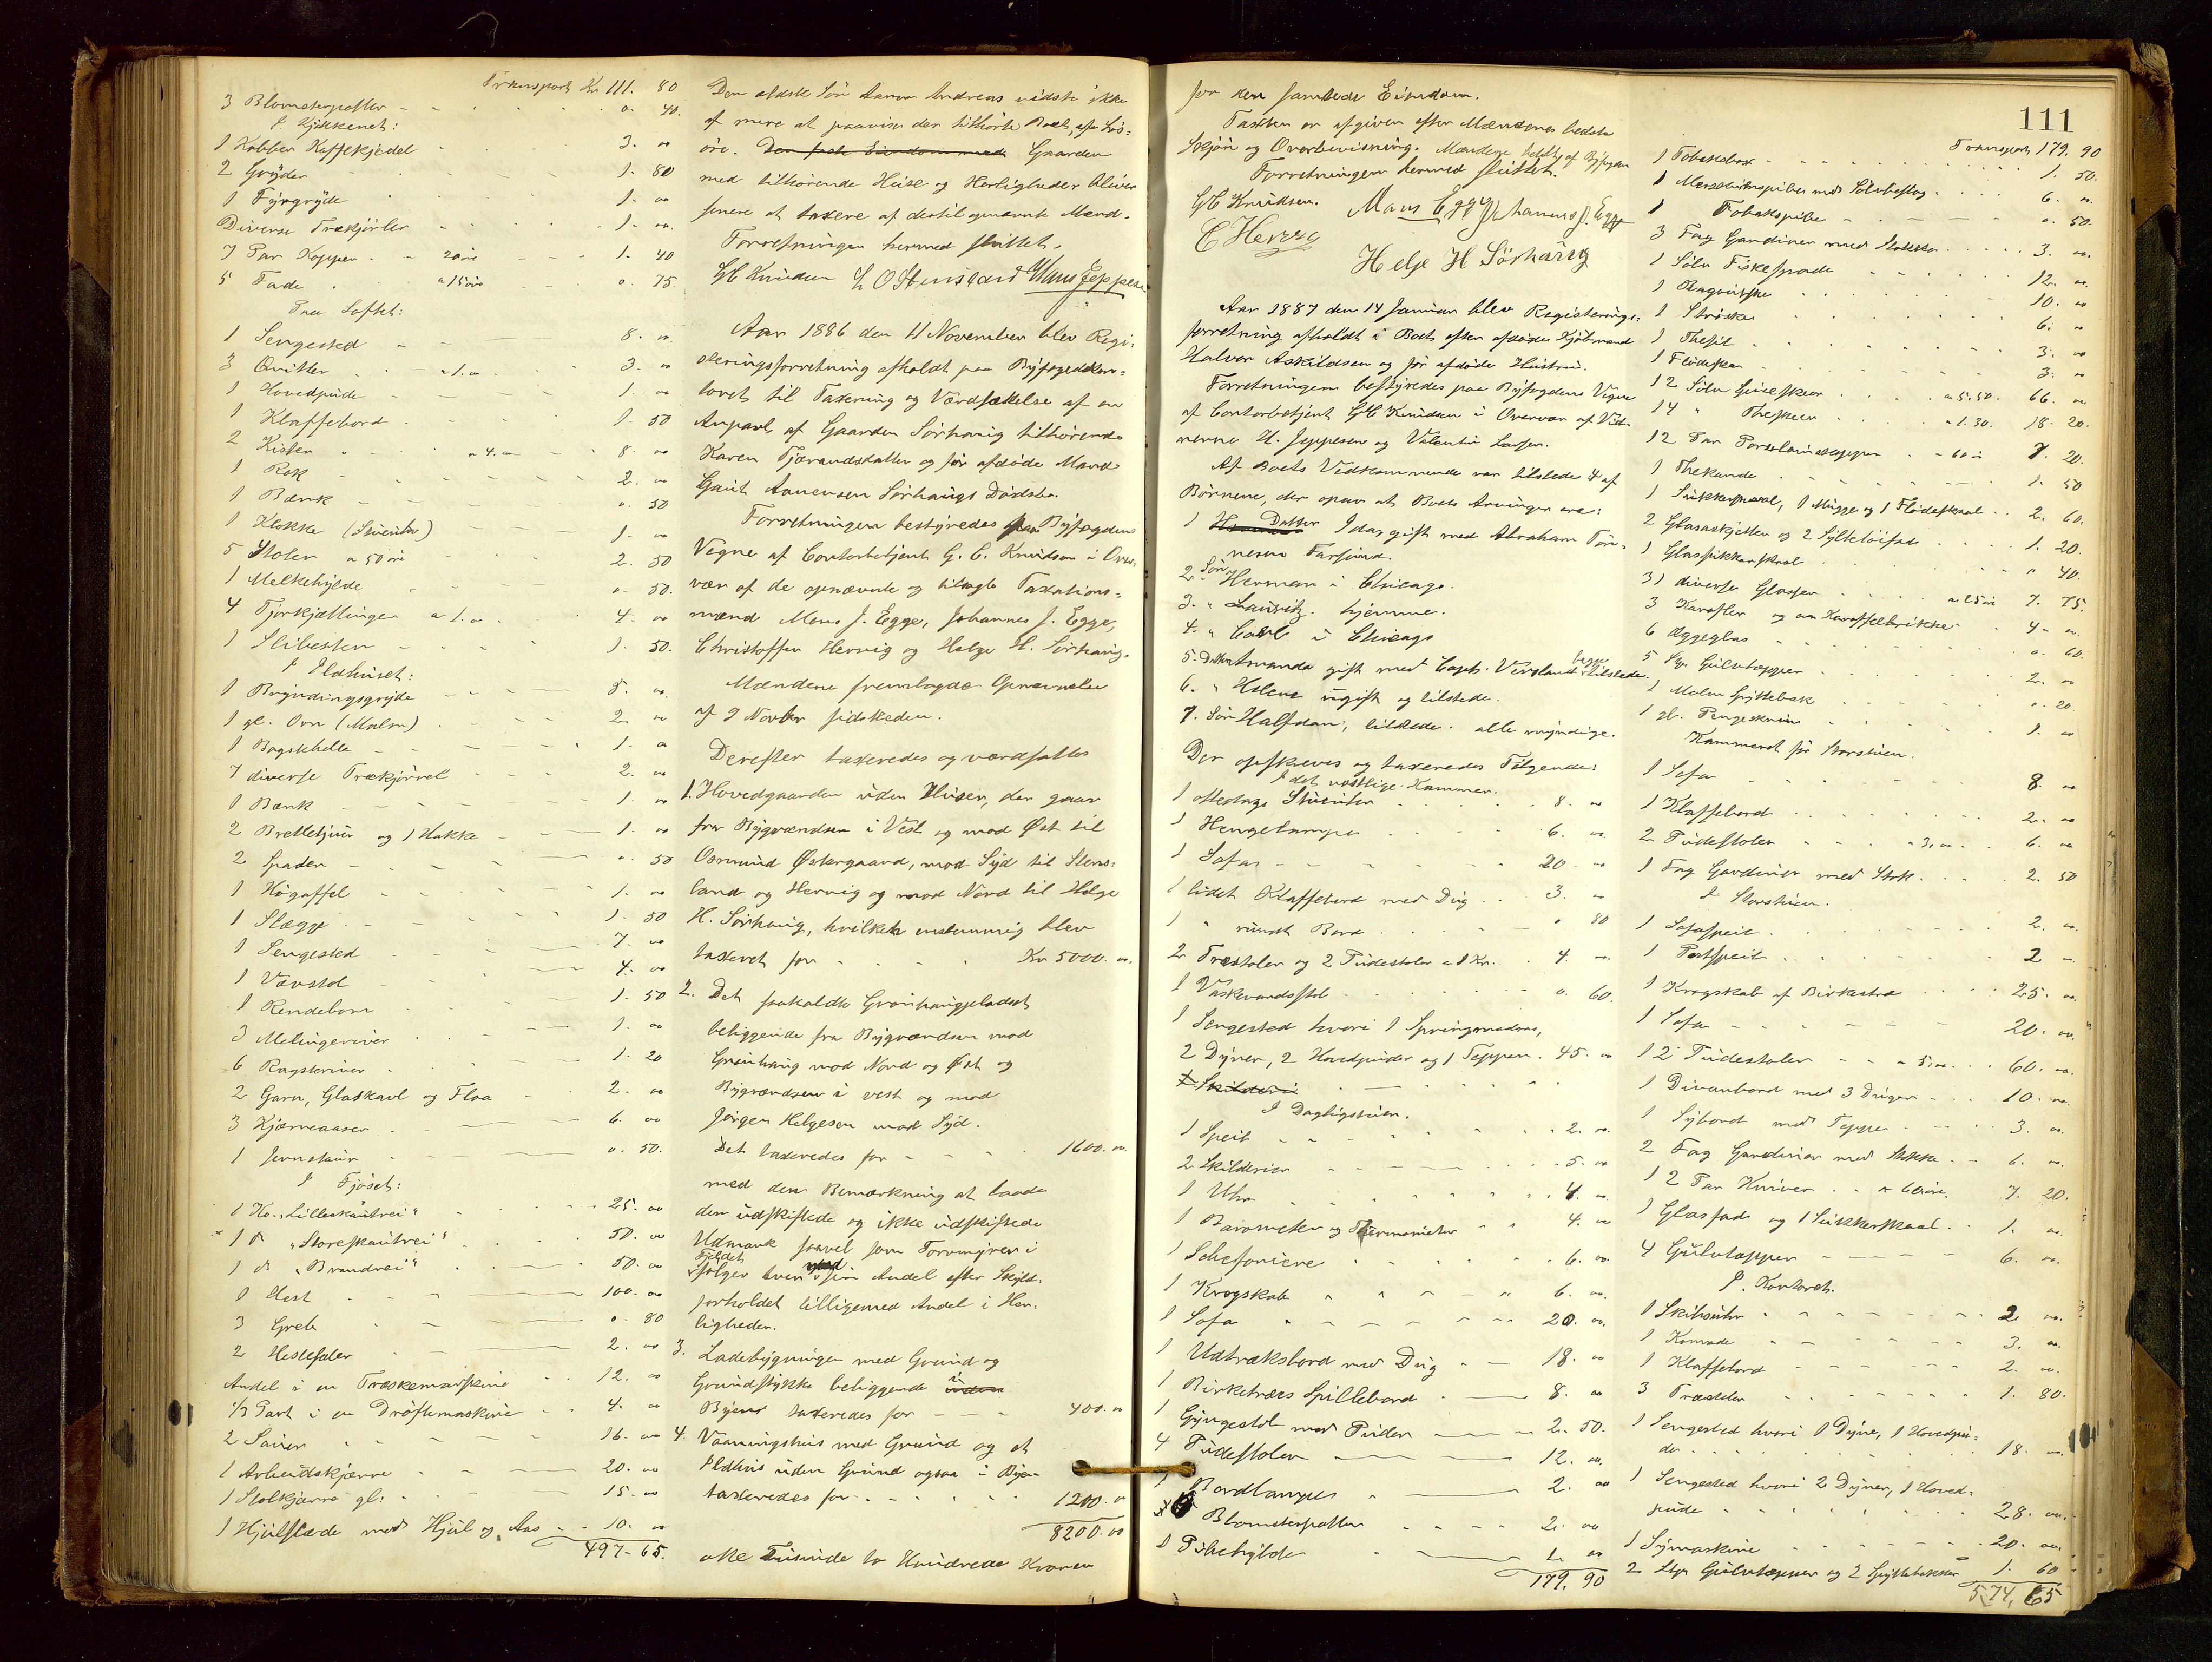 Transport Kr 111. 80
3 Blomsterpotter - - - o. 40.
I Kjökkenet:
1 Kobber Kaffekjedel - 3. oo
2 Gryder - 1. 80
1 Fyrgryde 1. oo
Diverse Trækjörler - 1. oo.
7 Par Kopper - 20 öre - 1. 40
5 Fade a 15 öre - o. 75
Paa Loftet:
1 Sengested - - 8. oo
3 Qvitler - a 1. oo - 3. oo
1 Hovedpude - - 1. oo
1 Klaffebord - 1. 50
2 Kister - a 4. oo - 8. oo
1 Rok - 2. oo
1 Bænk - - o. 50
1 Klokke (Stueuhr) - 1. oo
5 Stoler a 50 öre - 2. 50
1 Melkehylde - o. 50.
4 Tjorkjættinger a 1. oo - 4. oo
1 Slibesten - 1. 50.
I Ildhuset:
1 Bryndingsgryde - 5. oo.
1 gl. Ovn (Malm) - 2. oo
1 Bagstehelle - - 1. oo
7 diverse Trækjörrel - 2. oo
1 Bænk - - 1. oo
2 Brettetjuer og 1 Hakke - 1. oo
2 Spader - o. 50
1 Högaffel - 1. oo
1 Slægge - 1. 50
1 Sengested - 7. oo
1 Vævstol - 4. oo
1 Rendebom - 1. 50
3 Melingeriver - 1. oo
6 Ragsteriver - 1. 20
2 Garn, Glaskavl og Floa - 2. oo
3 Kjærneaaser - 6. oo
1 Jernstaur - o. 50.
I Fjöset:
1 Ko "Lilleskautrei" - 25. oo
1 do "Storeskautrei" - 50. oo
1 do "Brandrei" - 50. oo
1 Hest - 100. oo
3 Greb - o. 80
2 Hestesæler - 2. oo
Andel i en Træskemaskine - 12. oo
1/3 Part i en Dröftemaskine - 4. oo
2 Sauer - 16. oo
1 Arbeidskjærre - 20. oo
1 Stolkjærre gl. - 15. oo
1 Hjulslæde med Hjul og Aas - 10. oo
497-65.
Den ældste Sön Aanen Andreas vidste ikke
af mere at paavise der tilhörte Boet, efter Lös-
öre. Den faste Eiendom med Gaarden
med tilhörende Huse og Herligheder bliver
senere at taxere af dertil opnævnte Mænd.
Forretningen hermed sluttet.
GC Knudsen L O Stensland Hans Jeppesen
Aar 1886 den 11 November blev Regi-
streringsforretning afholdt paa Byfogedkon-
toret til Taxering og Værdsættelse af en
Anpart af Gaarden Sörhaug tilhörende
Karen Tjærandsdatter og för afdöde Mand
Gaut Aanensen Sörhaugs Dödsbo.
Forretningen bestyredes paa Byfogdens
Vegne af Contorbetjent G. C. Knudsen i Over-
vær af de opnævnte og tilsagte Taxations-
mænd Mons J. Egge, Johannes J. Egge,
Christoffer Hervig og Helge H. Sörhaug.
Mændene fremlagde Opnævnelse
af 9 Novbr sidstleden.
Derefter taxeredes og værdsattes
1. Hovedgaarden uden Huser, der gaar
fra Bygrændsen i Vest og mod Öst til
Osmund Östergaard, mod Syd til Stens-
land og Hervig og mod Nord til Helge
H. Sörhaug, hvilket enstemmig blev
taxeret for - Kr 5000. oo.
2. Det saakaldte Grönhaugjeladet
beliggende fra Bygrændsen mod
Grönhaug mod Nord og Öst og
Bygrændsen i vest og mod
Jörgen Helgesen mod Syd.
Det taxeredes for - 1600. oo.
med den Bemærkning at baade
den udskiftede og ikke udskiftede
Udmark saavel som Torvmyren i
Fjeldet
fölger hver med sin Andel efter Skyld-
forholdet tilligemed Andel i Her-
ligheder.
3. Ladebygningen med Grund og
Grundstykke beliggende i uden
Byens taxeredes for - 400. oo
4. Vaaningshus med Grund og et
Ildhus uden Grund ogsaa i Byen
taxeredes for - 1200. oo
8200. oo
otte Tusinde to Hundrede Kroner
111
for den samlede Eiendom.
Taxten er afgiven efter Mændenes bedste
Skjön og Overbevisning. Mændene af Byfogden
Forretningen hermed sluttet.
GC Knudsen. Mons Egge Johannes J. Egge
C Herwig
Helge H Sörhaug
Aar 1887 den 14 Januar blev Registrerings-
forretning afholdt i Boet efter afdöde Kjöbmand
Halvor Askildsen og för afdöde Hustru.
Forretningen bestyredes paa Byfogdens Vegne
af Contorbetjent GC Knudsen i Overvær af Vid-
nerne H. Jeppesen og Valentin Larsen.
Af Boets Vedkommende var tilstede 4 af
Börnene, der opgav at Boets Arvinger ere:
1 Datter Ida, gift med Abraham Tön-
nesen Farsund.
2. Sön Herman i Chicago.
3. " Lauritz. hjemme.
4. " Carl i Chicago
5. Datter Amanda gift med Capt. Versland begge tilstede.
6. " Helene ugift og tilstede.
7. Sön Halfdan, tilstede. alle myndige.
Der opskreves og taxeredes Fölgende:
I det vestlige Kammer.
1 ottedags Stueuhr - 8. oo
1 Hengelampe - 6. oo.
1 Sofa - 20. oo
1 lidet Klaffebord med Dug - 3. oo
1 " rundt Bord - o 80
2 Træstoler og 2 Pudestoler a 1 Kr. - 4. oo.
1 Vaskevandsstol - o. 60.
1 Sengested hvori 1 Springmadras,
2 Dyner, 2 Hovedpuder og 1 Teppe. 45. oo
1 Skilderi
I Dagligstuen.
1 Speil - 2. oo.
2 Skilderier - 5. oo
1 Uhr - 4. oo.
1 Barometer og Thermometer - 4. oo
1 Schefoniere - 6. oo.
1 Krogskab - 6. oo.
1 Sofa - 20. oo.
1 Udtræksbord med Dug - 18. oo
1 Birketræs Spillebord - 8. oo
1 Gyngestol med Puder - 2. 50.
4 Pudestoler - 12. oo.
1 Bordlampe - 2. oo
Blomsterpotter - 2. oo
1 Pibehylde - 1. oo
179. 90
Transport 179. 90
1 Tobaksbox - 1. 50.
1 Merskumspibe med Sölvbeslag. 6. oo.
1 Tobakspibe - o. 50.
3 Fag Gardiner med Stokke - 3. oo.
1 Sölv Fiskespade - 12. oo.
1 Ragouskee - 10. oo
1 Ströske 6. oo
1 Thesil - 3. oo
1 Flödeske - 3. oo
12 Sölv Spiseskeer - a 5.50. 66. oo
14 " Theskeer - a 1.30. 18. 20.
12 Par Porselainskopper - a 60 ö 7. 20.
1 Thekande - 1. 50
1 Sukkerskaal, 1 Mugge og 1 Flödeskaal - 2. 60.
2 Glasaskjetter og 2 Syltetöifad 1. 20.
1 Glassukkerskaal - o 40.
31 diverse Glasser - a 25 öre 7. 75.
3 Karafler og en Karaffelbrikke - 4. oo.
6 Æggeglas - o. 60.
5 Stk Gulvtepper - 2. oo
1 Malm Spyttebak - o. 20.
1 gl. Pengeskrin - 1. oo
Kammeret för Storstuen.
1 Sofa - 8. oo
1 Klaffebord - 2. oo
2 Pudestoler - a 3. oo - 6. oo
1 Fag Gardiner med Stok. - 2. 50
I Storstuen.
1 Sofaspeil - 2. oo.
1 Portspeil - 2 -
1 Krogskab af Birketræ - 25. oo.
1 Sofa - 20. oo.
12 Pudestoler - a 5. oo. - 60. oo.
1 Divanbord med 3 Duger - 10. oo.
1 Sybord med Teppe - 3. oo.
2 Fag Gardiner med Stokke - 6. oo.
12 Par Kniver - a 60 öre. 7. 20.
1 Glasfad og 1 Sukkerskaal - 1. oo.
4 Gulvtepper - 6. oo.
I Kontoret.
1 Skibsuhr - 2 oo.
1 Komode - 3. oo.
1 Klaffebord - 2. oo.
3 Træstoler - 1. 80.
1 Sengested hvori 1 Dyne, 1 Hovedpu-
de - 18. oo.
1 Sengested hvori 2 Dyner, 1 Hoved-
pude - 28. oo.
1 Symaskine - 20. oo.
2 Stk Gulvtepper og 2 Spyttebakker 1. 60
574, 65